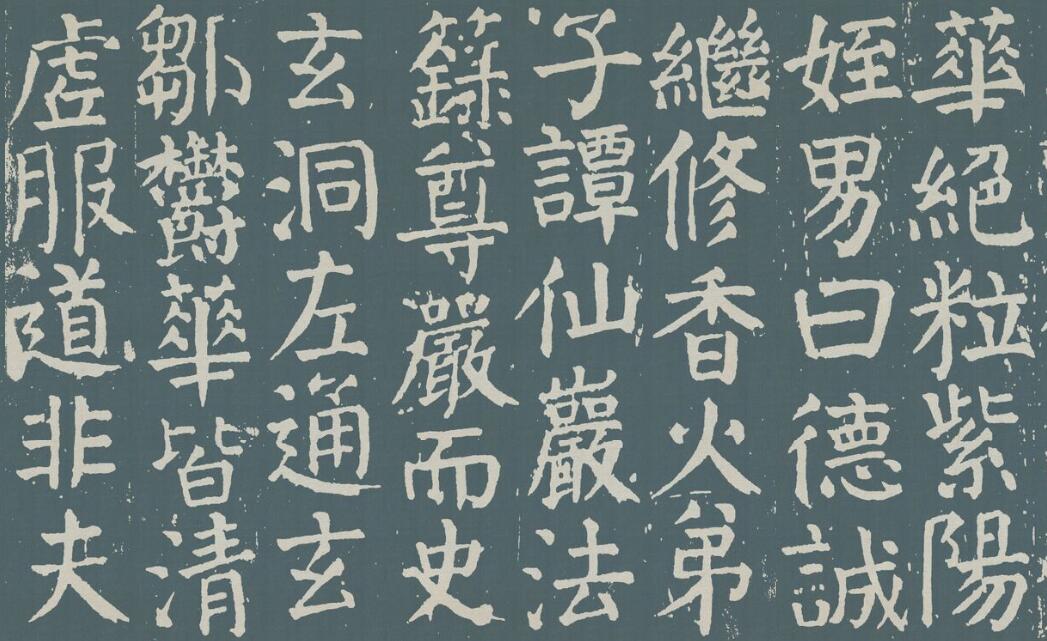 華絕粒紫陽
姪男曰德誠
繼修香火弟
子譚仙巖法
籙尊嚴而史
玄洞左通玄
鄒鬱華皆清
虛服道非夫